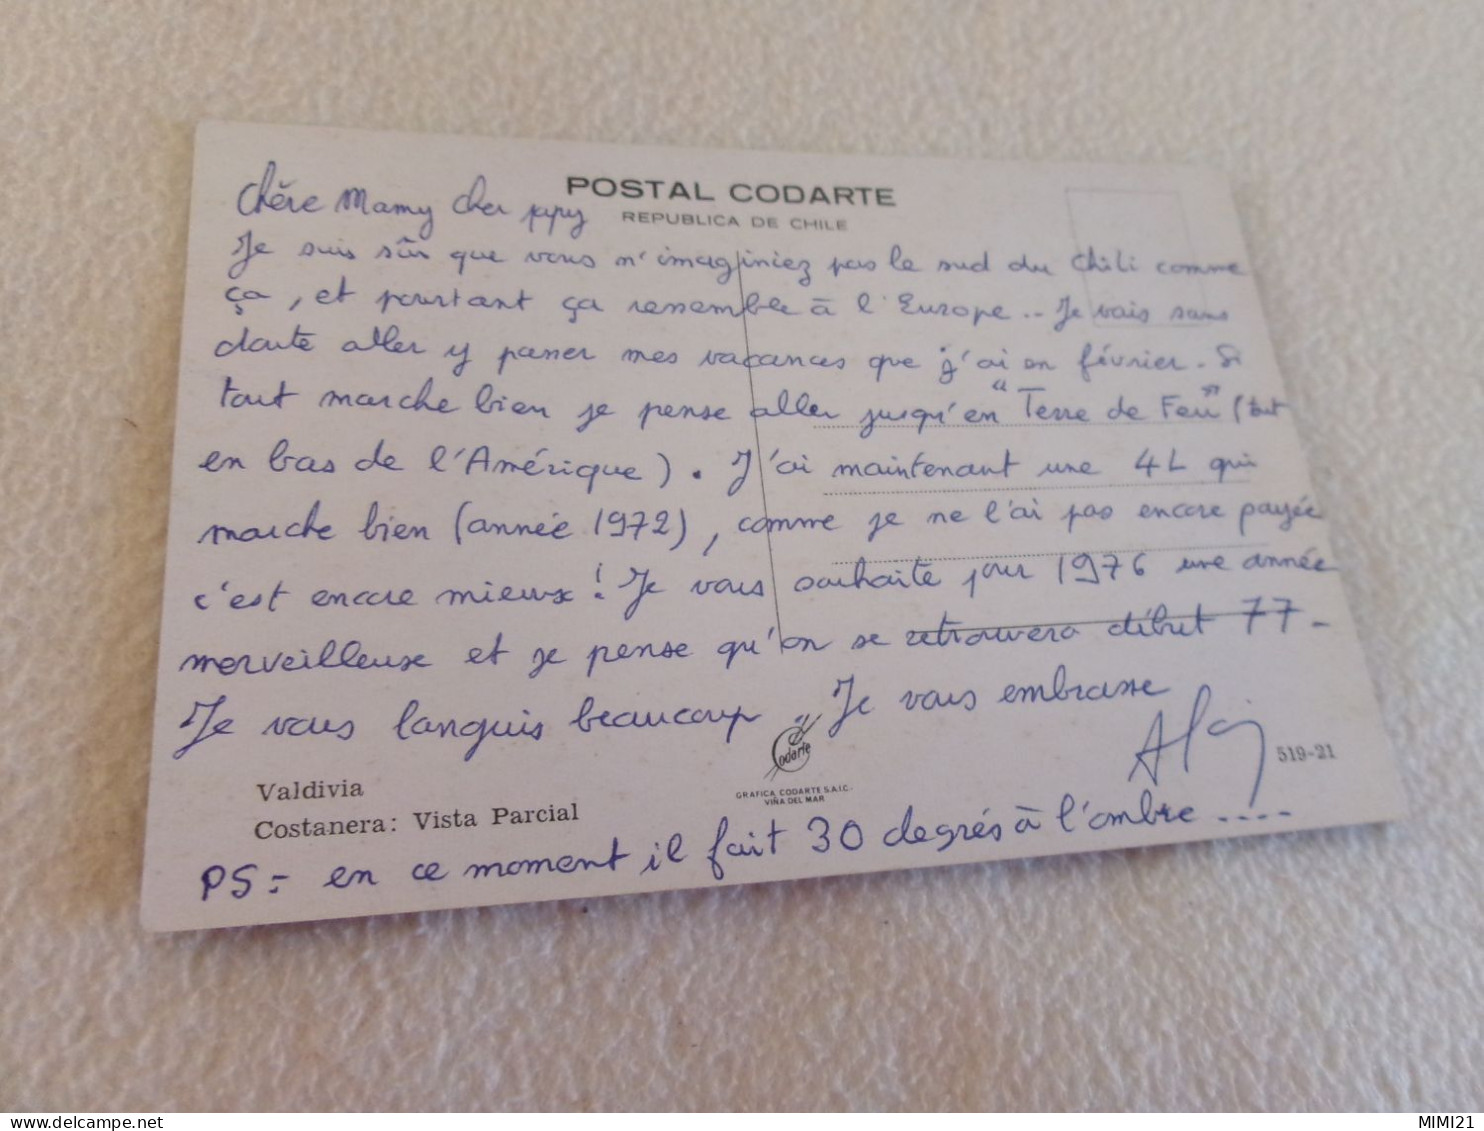 POSTAL CODARTE
REPUBLICA DE CHILE
Chère Mamy Cher papy
Je suis sûr que vous n'imaginiez pas le sud du Chili comme
ça, et pourtant ça ressemble à l'Europe.. Je vais sans
doute aller y passer mes vacances que j'ai en février. Si
tout marche bien je pense aller jusqu'en "Terre de Feu" (tout
en bas de l'Amérique). J'ai maintenant une 4L qui
marche bien (année 1972), comme je ne l'ai pas encore payée
c'est encore mieux! Je vous souhaite pour 1976 une année
merveilleuse et je pense qu'on se retrouvera début 77-
Je vous languis beaucoup.. Je vous embrasse
Alain
Codarte
GRAFICA CODARTE S.A.I.C.
VIÑA DEL MAR
519-21
Valdivia
Costanera: Vista Parcial
PS:- en ce moment il fait 30 degrés à l'ombre ....
delcampe.net
MIMI21